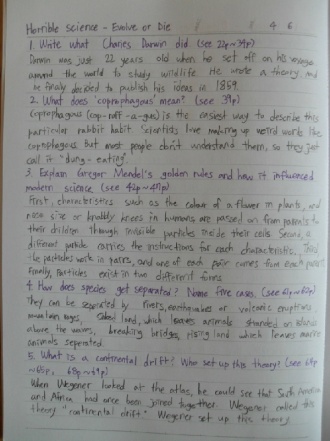 Horrible Science - Evolve or Die 4 6
1. Write what Charles Darwin did. (see 22p~34p)
Darwin was just 22 years old when he set off on his voyage
around the world to study wildlife. He wrote a theory, and
he finally decided to publish his ideas in 1859.
2. What does 'copraphagous' mean? (see 39p)
Copraphagous (cop-raff-a-gus) is the easiest way to describe this
particular rabbit habit. Scientists love making up weird words like
copraphagous. But most people don't understand them, so they just
call it "dung-eating".
3. Explain Gregor Mendel's golden rules and how it influenced
modern science. (see 42p~47p)
First, characteristics such as the colour of a flower in plants, and
nose size or knobbly knees in humans are passed on from parents to
their children through invisible particles inside their cells. Second, a
different particle carries the instructions for each characteristic. Third
the particles work in pairs, and one of each pair comes from each parent.
Finally, Particles exist in two different forms.
4. How does species get separated? Name five cases. (see 61p~62p)
They can be separated by rivers, earthquakes or volcanic eruptions
mountain ranges, land, which leaves animals stranded on islands
above the waves, breaking bridges, rising land which leaves marine
animals seperated.
5. What is a continental drift? Who set up this theory? (see 64p
~65p, 68p~69p)
When Wegener looked at the atlas, he could see that South America
and Africa had once been joined together. Wegener called this
theory "continental drift". Wegener set up this theory.